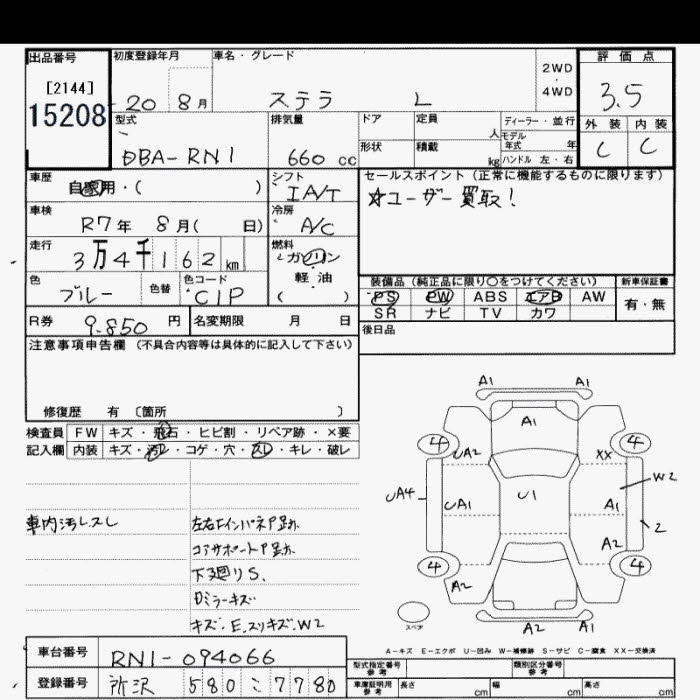 出品番号
[2144]
15208
初度登録年月
20 8月
車名・グレード
ステラ L
2WD
・
4WD
評価点
3.5
外装 内装
C C
型式
DBA-RN1
排気量
660 cc
ドア 定員 人
形状 積載 kg
ディーラー・並行
モデル年式 年
ハンドル 左・右
車歴
自家用・( )
シフト
IA/T
車検
R7年 8月( 日)
冷房
A/C
走行
3万4千162km
燃料
ガソリン
軽油
( )
色
ブルー
色替
色コード
C1P
セールスポイント(正常に機能するものに限ります)
☆ユーザー買取!
装備品(純正品に限り○をつけてください)
PS PW ABS エアB AW
SR ナビ TV カワ
新車保証書
有・無
R券 9.850円
名変期限 月 日
後日品
注意事項申告欄 (不具合内容等は具体的に記入して下さい)
修復歴 有 〔箇所 〕
検査員記入欄
FW キズ・飛石・ヒビ割・リペア跡・×要
内装 キズ・汚レ・コゲ・穴・スレ・キレ・破レ
車内汚レスレ
左右FインパネP跡
コアサポートP跡
下廻りS.
Dミラーキズ
キズ.E.スリキズ.W2
A1 A1
A1
4 4
UA2 XX
W2
UA4 UA1 U1 A1
2
A2
4 4
A2
A2 A1
スペア
A-キズ E-エクボ U-凹み W-補修跡 S-サビ C-腐食 XX-交換済
車台番号 RN1-094066
登録番号 所沢 580 こ 7780
型式指定番号 参考
類別区分番号 参考
車庫証明用 参考
長さ cm 幅 cm 高さ cm